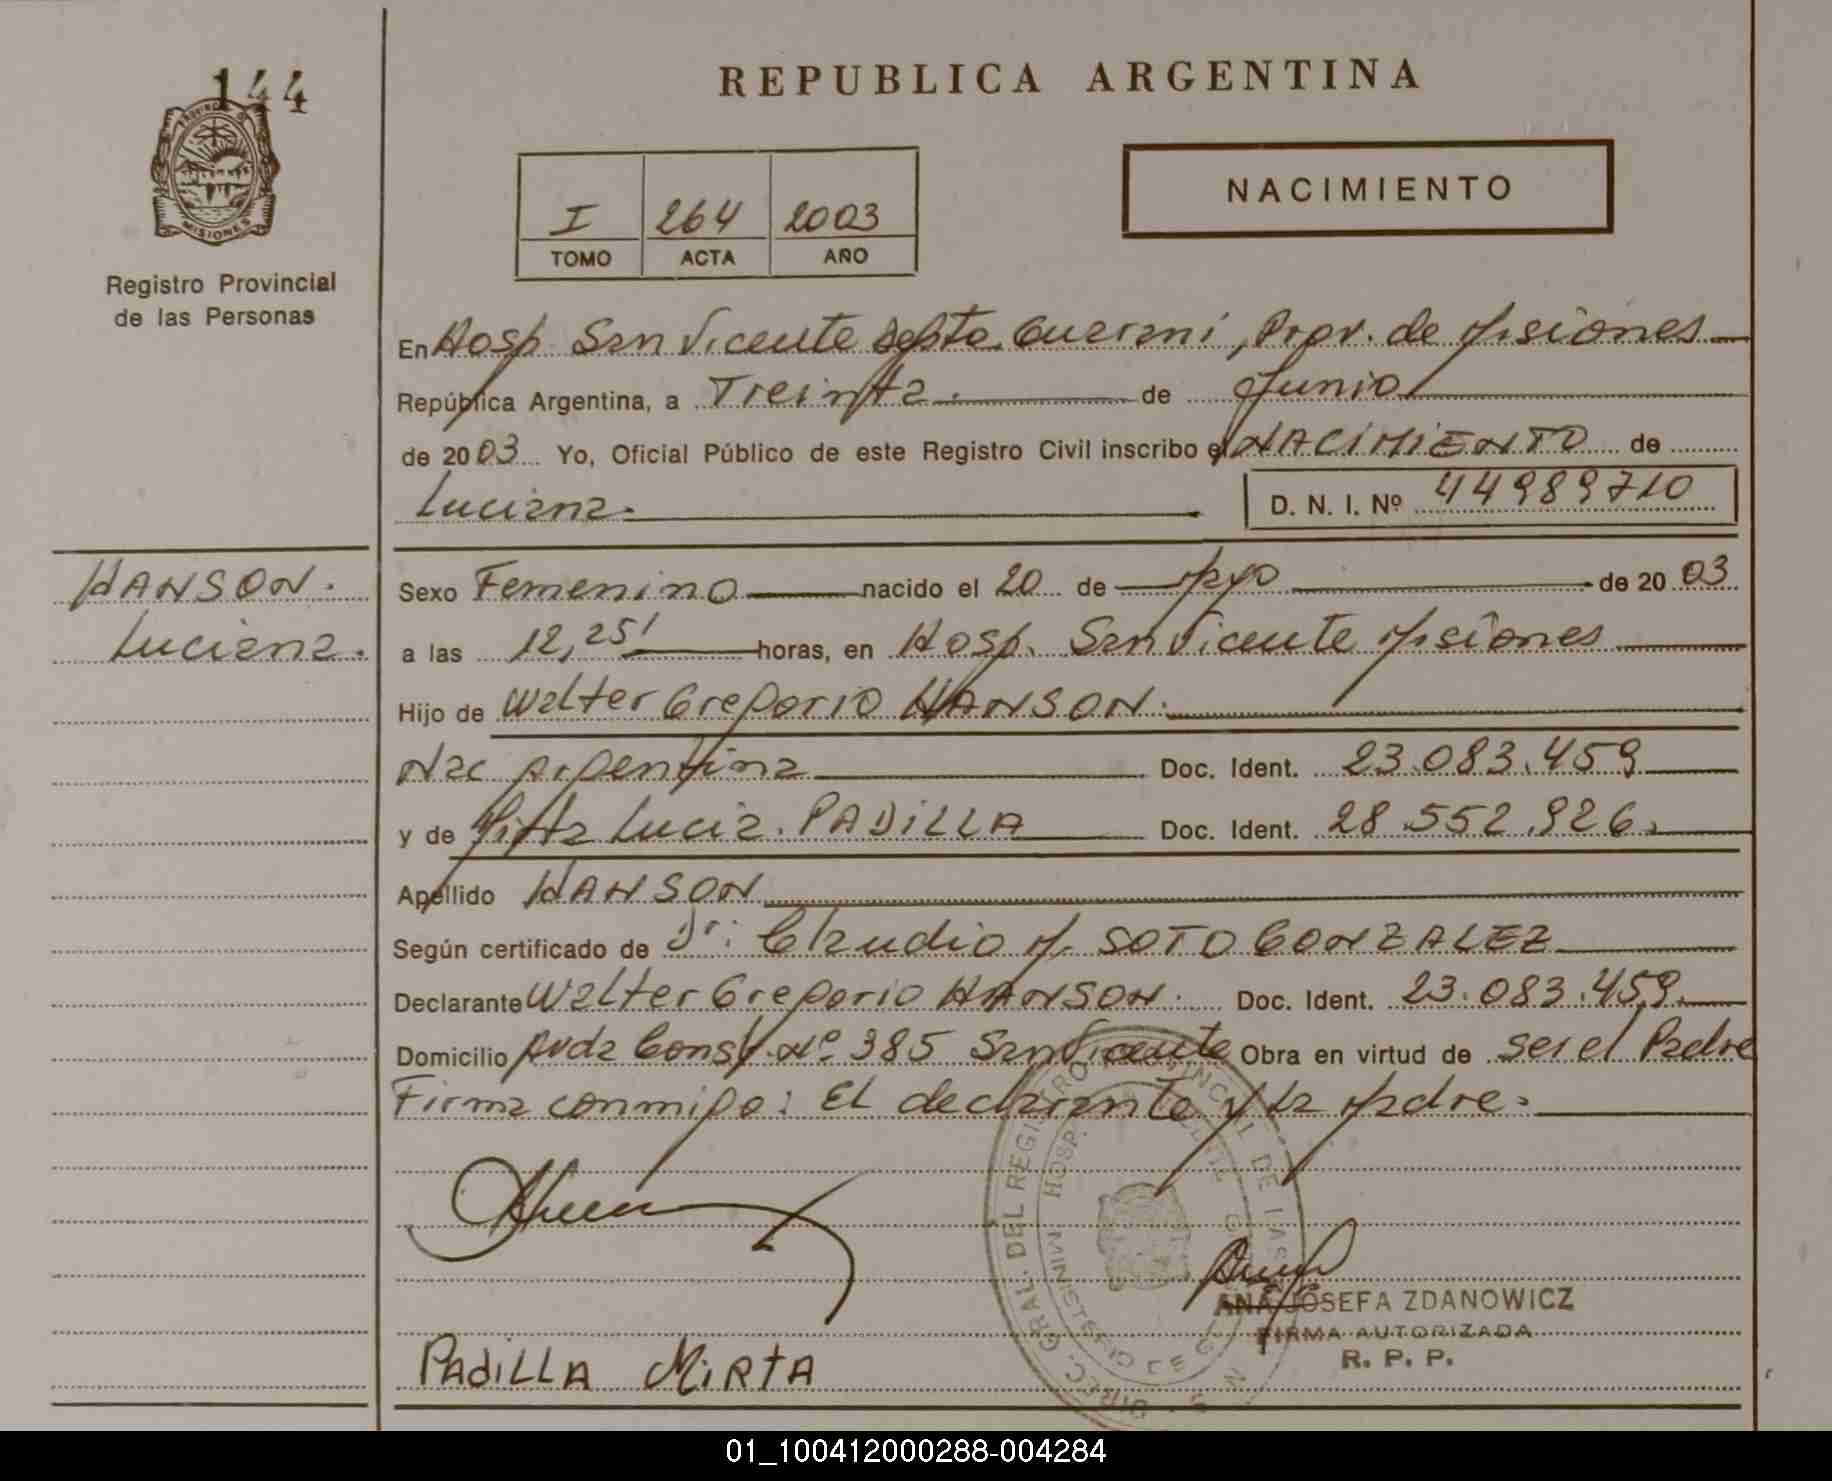 144
REPUBLICA ARGENTINA
PROVINCIA
MISIONES
Registro Provincial
de las Personas
I 264 2003
TOMO ACTA AÑO
NACIMIENTO
En Hosp. San Vicente Depto. Guarani, Prov. de Misiones
República Argentina, a Treinta. de Junio
de 2003 Yo, Oficial Público de este Registro Civil inscribo el NACIMIENTO de
Luciana.
D. N. I. Nº 44989710
HANSON.
Luciana.
Sexo Femenino nacido el 20 de Mayo de 2003
a las 12,25' horas, en Hosp. San Vicente Misiones
Hijo de Walter Gregorio HANSON.
Nac Argentina Doc. Ident. 23.083.459
y de Mirta Lucia. PADILLA Doc. Ident. 28.552.926.
Apellido HANSON
Según certificado de Dr: Claudio M. SOTO GONZALEZ
Declarante Walter Gregorio HANSON. Doc. Ident. 23.083.459.
Domicilio Avda Const. Nº 385 San Vicente Obra en virtud de ser el Padre
Firma conmigo: El declarante y la Madre.
DIREC. GRAL. DEL REGISTRO PROVINCIAL DE LAS
HOSP.
MINISTERIO DE
ANA JOSEFA ZDANOWICZ
FIRMA AUTORIZADA
R. P. P.
PADILLA MIRTA
01_100412000288-004284